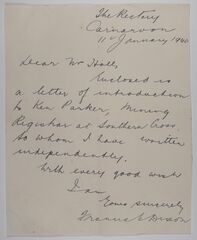 The Rectory
Carnarvon
11th January 1940
Dear Mr Halls
Enclosed is
a letter of introduction
to Ken Parker, Mining
Registrar at Southern Cross
to whom I have written
independently.
With every good wish
I am
Yours sincerely